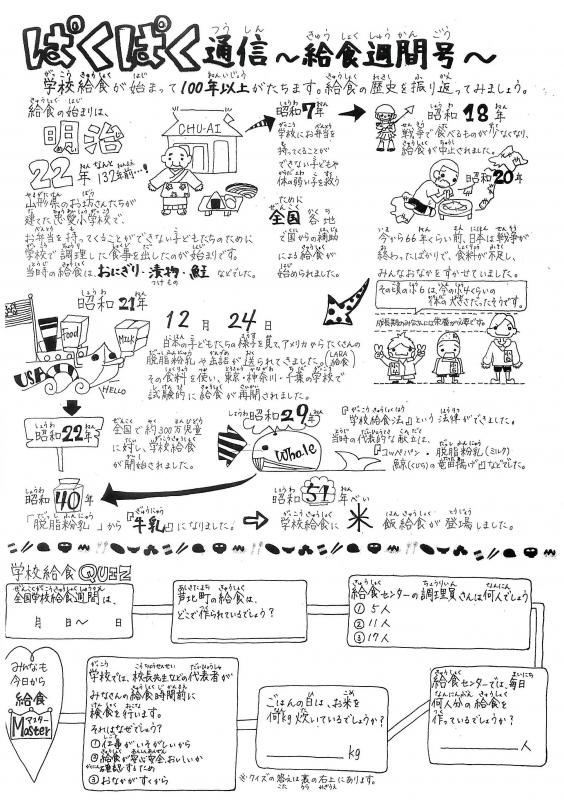 ぱくぱく通信～給食週間号～
学校給食が始まって100年以上がたちます。給食の歴史を振り返ってみましょう。
給食の始まりは、
明治
22年 なんと132年前…!
山形県のお坊さんたちが
建てた忠愛小学校で、
お弁当を持ってくることができない子どもたちのために
学校で調理した食事を出したのが始まりです。
当時の給食は、おにぎり・漬物・鮭 などでした。
CHU-AI
昭和7年
学校にお弁当を
持ってくることが
できない子どもや
体の弱い子を救う
ために
全国各地
で国からの補助
による給食が
始められました。
昭和18年
戦争で食べるものが少なくなり、
給食が中止されました。
昭和20年
今から66年くらい前、日本は戦争が
終わったばかりで、食料が不足し、
みんなおなかをすかせていました。
その頃の小6は、今の小4くらいの
体の大きさだったそうです。
成長期のみなさんには栄養が必要です。
昭和21年
12月24日
日本の子どもたちの様子を見て、アメリカからたくさんの
脱脂粉乳や缶詰が送られてきました。(LARA給食)
その食料を使い、東京・神奈川・千葉の学校で
試験的に給食が再開されました。
Food
Milk
USA
HELLO
昭和22年
全国で約300万児童
に対し、学校給食
が開始されました。
昭和29年
Whale
『学校給食法』という法律ができました。
当時の代表的な献立は、
『コッペパン・脱脂粉乳(ミルク)
鯨(くじら)の竜田揚げ』などでした。
昭和40年
「脱脂粉乳」から『牛乳』になりました。
昭和51年
学校給食に米飯給食が登場しました。
学校給食QUIZ
全国学校給食週間は、
月 日～ 日
芦北町の給食は、
どこで作られているでしょう?
給食センターの調理員さんは何人でしょう
① 5人
② 11人
③ 17人
給食センターでは、毎日
何人分の給食を
作っているでしょうか?
人
ごはんの日は、お米を
何kg炊いているでしょうか?
kg
学校では、校長先生などの代表者が
みなさんの給食時間前に
検食を行います。
それはなぜでしょう?
① 仕事がいそがしいから
② 給食が安心安全、おいしいか
確認するため
③ おなかがすくから
みんなも
今日から
給食
マスター
Master
※クイズの答えは裏の右上にあります。